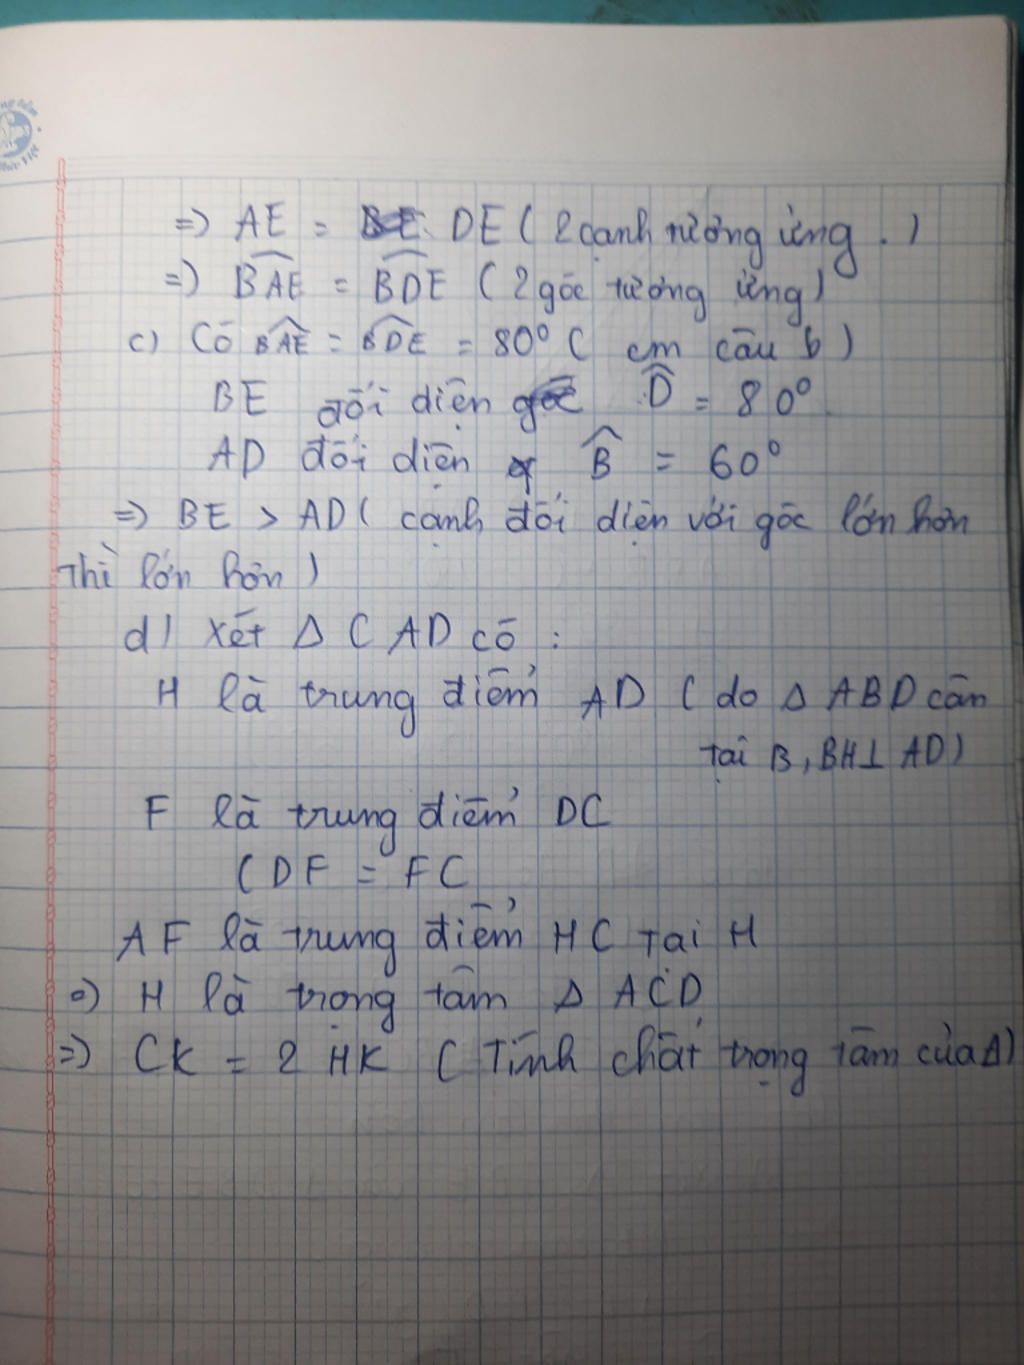 =) AE = DE ( 2 cạnh tương ứng . )
=) BAE = BDE ( 2 góc tương ứng )
c) Có BAE = BDE = 80° ( cm câu b )
BE đối diện góc D = 80°
AD đối diện B = 60°
=) BE > AD ( cạnh đối diện với góc lớn hơn
thì lớn hơn )
d) Xét Δ CAD có :
H là trung điểm AD ( do Δ ABD cân
tại B , BH⊥ AD )
F là trung điểm DC
( DF = FC
AF là trung điểm HC tại H
=) H là trọng tâm Δ ACD
=) CK = 2 HK ( Tính chất trọng tâm của Δ )